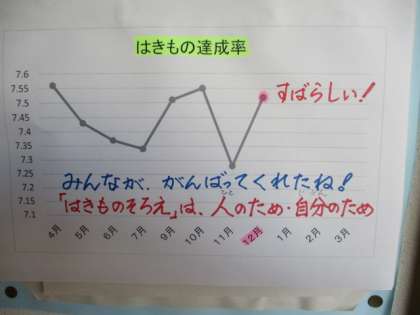 はきもの達成率
7.6
7.55
7.5
7.45
7.4
7.35
7.3
7.25
7.2
7.15
7.1
すばらしい!
みんなが、がんばってくれたね!
ひと じぶん
「はきものそろえ」は、人のため・自分のため
4月 5月 6月 7月 9月 10月 11月 12月 1月 2月 3月